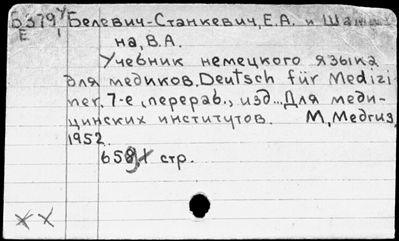 Б379 Белевич-Станкевич, Е.А. и
Е
на, В.А.
Учебник немецкого языка
для медиков. Deutsch für Medizi
ner. 7-е, перераб., изд... Для меди-
цинских институтов. М, Медгиз,
1952.
стр.